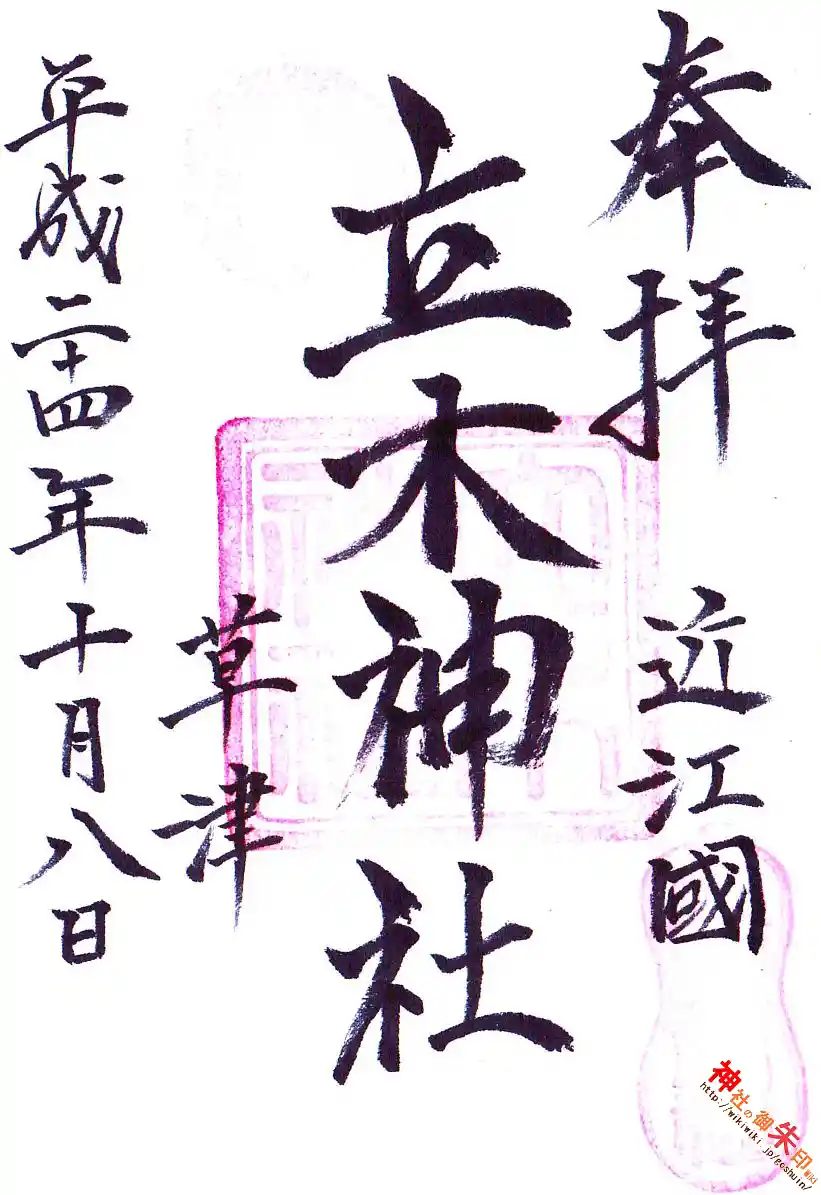 奉拝
近江國
立木神社
草津
平成二十四年十月八日
神社の御朱印Wiki
http://wikiwiki.jp/goshuin/